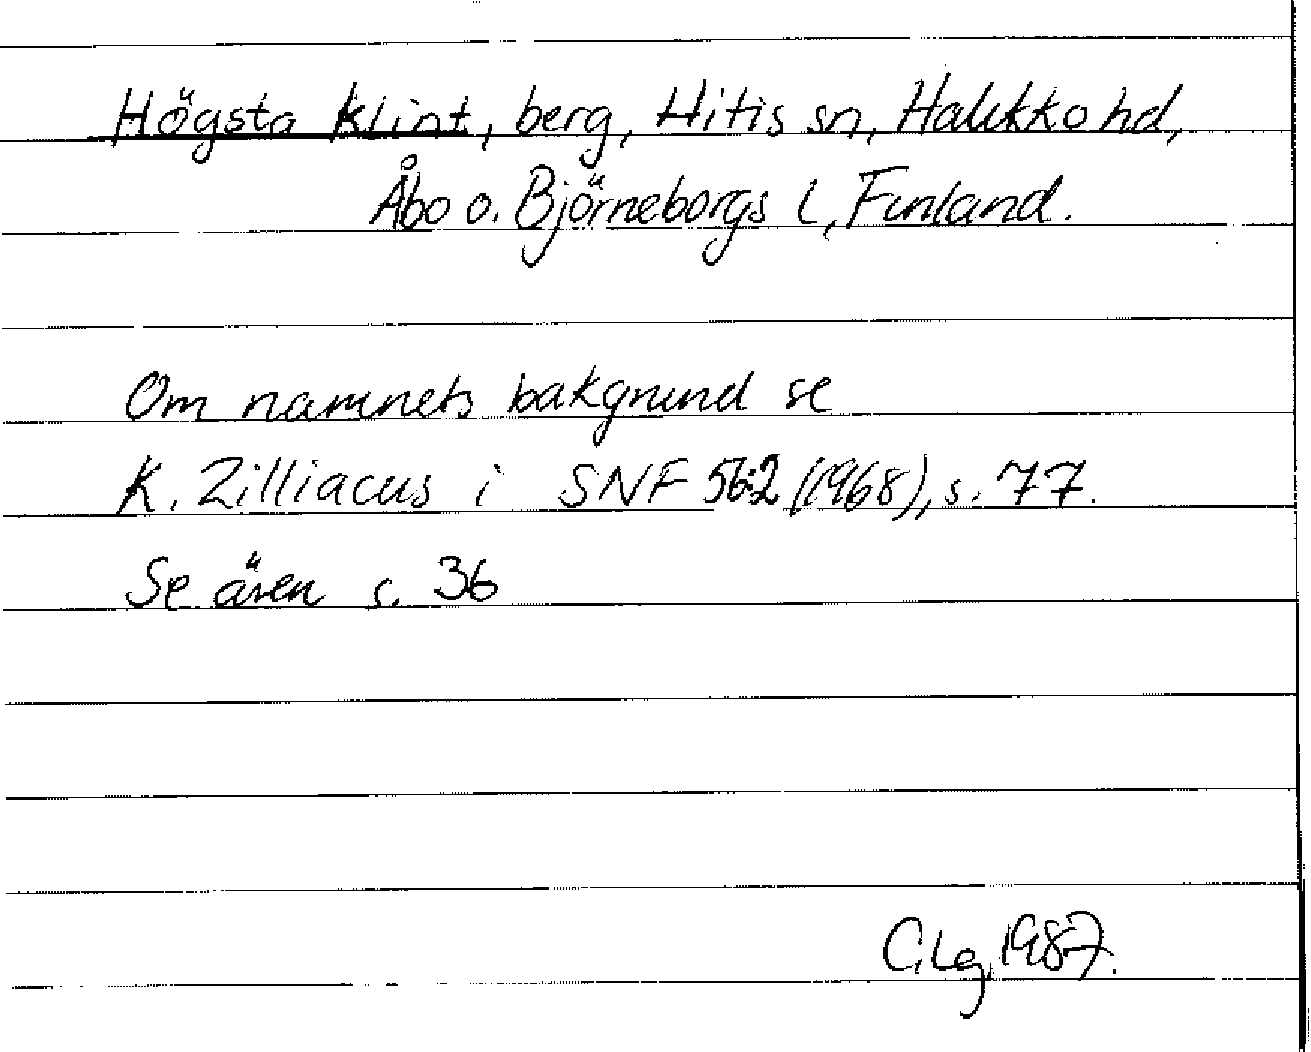 Högsta klint, berg, Hitis sn, Halikko hd,
Åbo o. Björneborgs l, Finland.
Om namnets bakgrund se
K. Zilliacus i SNF 56:2 (1968), s. 77.
Se även s. 36
C.Lg. 1987.